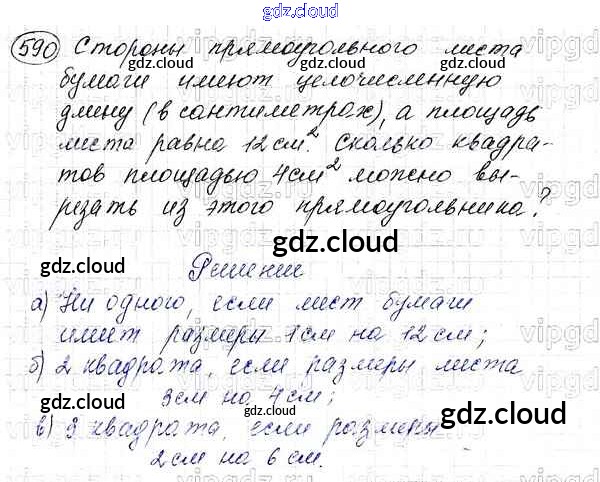 gdz.cloud
590 Стороны прямоугольного листа
бумаги имеют целочисленную
длину (в сантиметрах), а площадь
листа равна 12 см². Сколько квадра-
тов площадью 4см² можно вы-
резать из этого прямоугольника?
gdz.cloud
Решение
а) Ни одного, если лист бумаги
имеет размеры 1см на 12 см;
б) 2 квадрата, если размеры листа
3см на 4см;
в) 3 квадрата, если размеры
2см на 6 см.